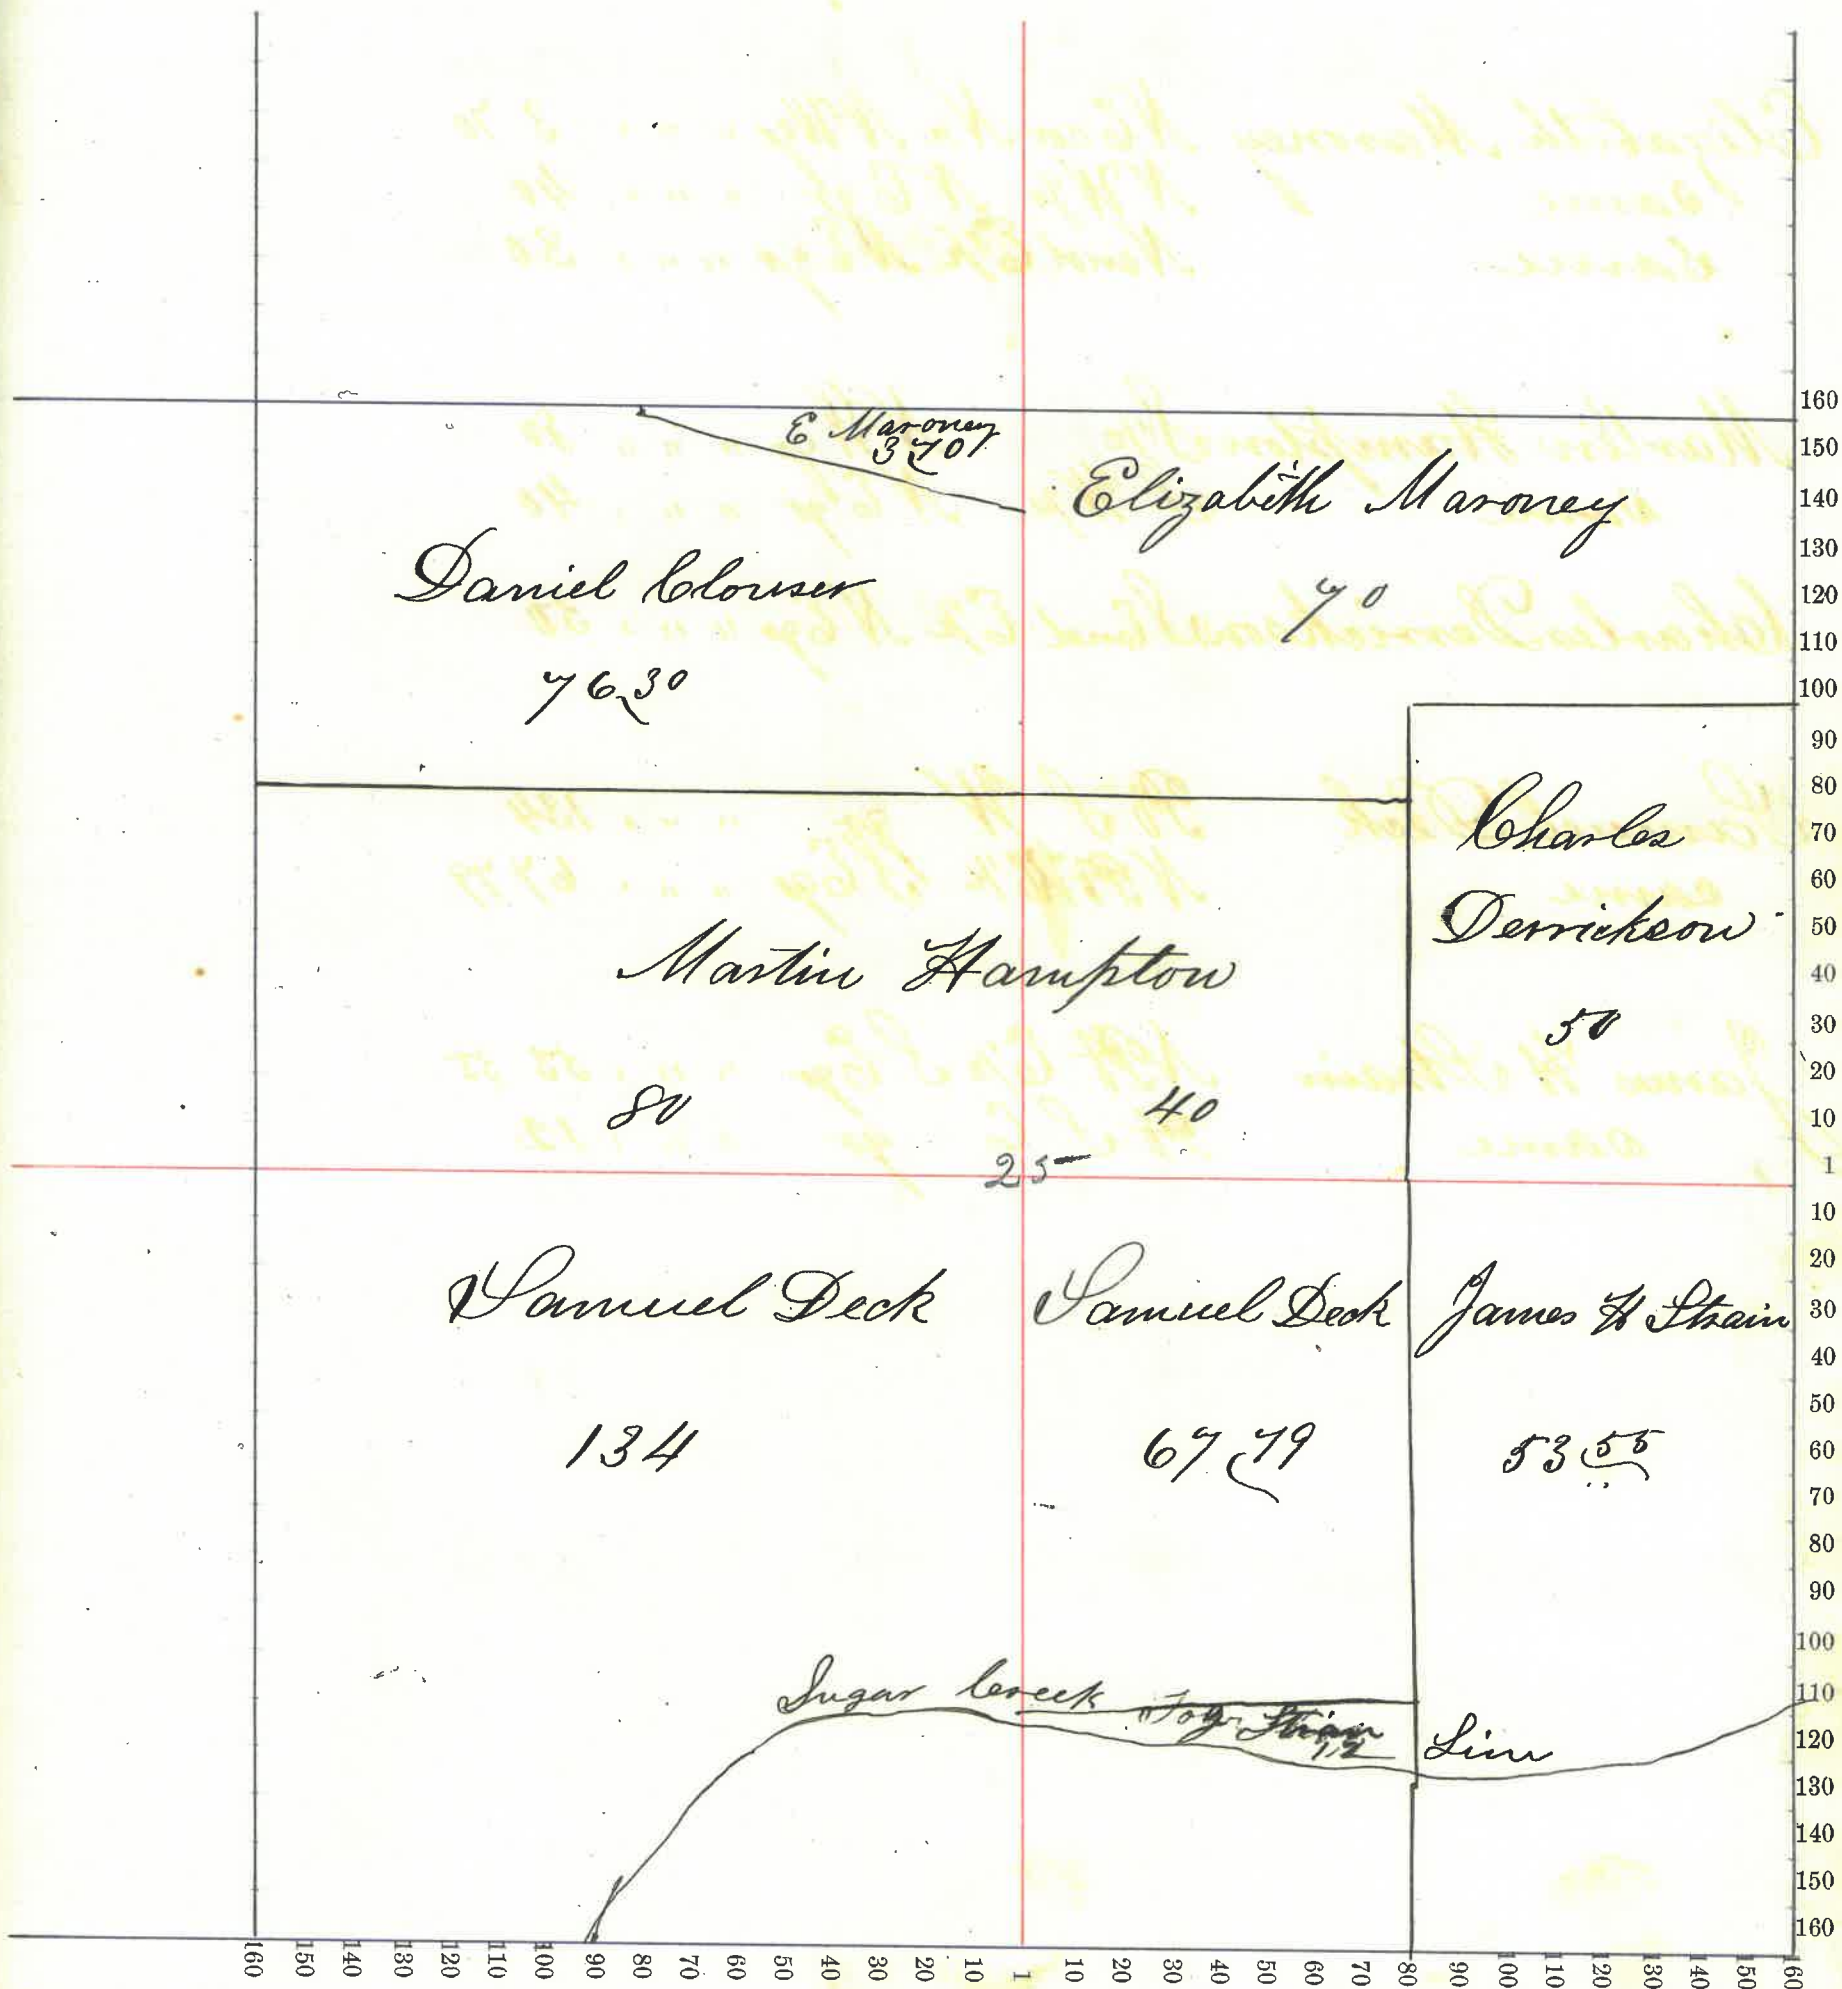 E Maroney
3 70
Elizabeth Maroney
70
Daniel Clouser
76 30
Charles
Derrickson
50
Martin Hampton
80
40
25
Samuel Deck
134
Samuel Deck
67 79
James H Strain
53 55
Sugar Creek
Strain
12
Line
160
150
140
130
120
110
100
90
80
70
60
50
40
30
20
10
1
10
20
30
40
50
60
70
80
90
100
110
120
130
140
150
160
160 150 140 130 120 110 100 90 80 70 60 50 40 30 20 10 1 10 20 30 40 50 60 70 80 90 100 110 120 130 140 150 160